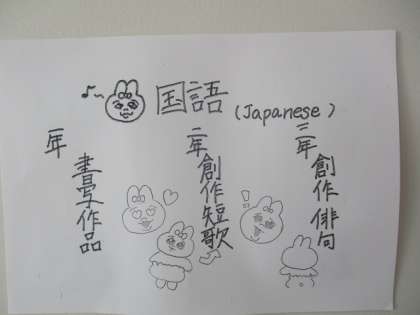 国語 (Japanese)
三年 創作俳句
二年 創作短歌
一年 書写作品